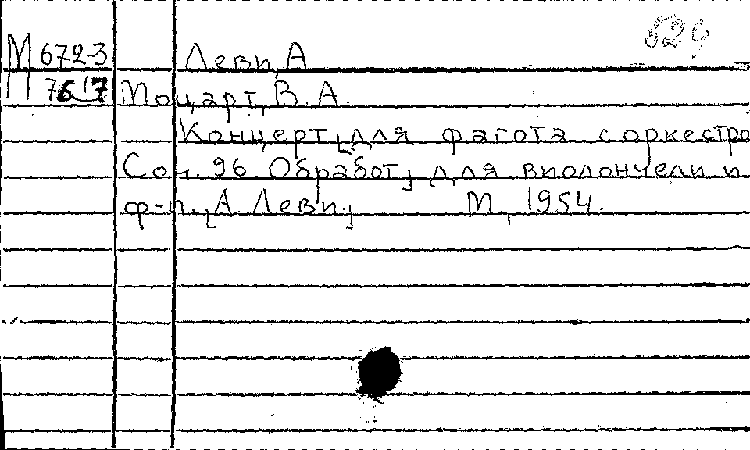 М 672-3 Леви, А 529
П 7617 Моцарт, В. А.
Концерт, для фагота с оркестро
Соч. 96. Обработ, для виолончели и
ф-п., А Леви, М., 1954.